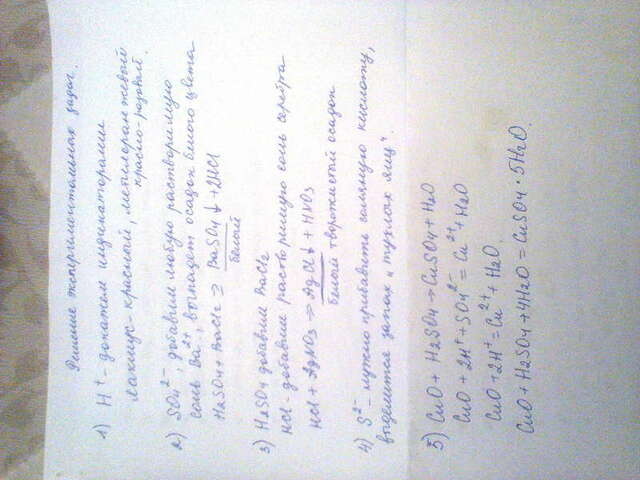 Решение экспериментальных задач.
1) H⁺ - докажем индикаторами
лакмус - красный, метилоранжевый
красно-розовый.
2) SO₄²⁻, добавим любую растворимую
соль Ba²⁺, выпадет осадок белого цвета
H₂SO₄ + BaCl₂ → BaSO₄↓ + 2HCl
белый
3) H₂SO₄ добавим BaCl₂
HCl - добавим растворимую соль серебра
HCl + AgNO₃ → AgCl↓ + HNO₃
белый творожистый осадок
4) S²⁻ - нужно прибавить сильную кислоту,
выделяется запах „тухлых яиц“.
5) CuO + H₂SO₄ → CuSO₄ + H₂O
CuO + 2H⁺ + SO₄²⁻ = Cu²⁺ + H₂O
CuO + 2H⁺ = Cu²⁺ + H₂O
CuO + H₂SO₄ + 4H₂O = CuSO₄ · 5H₂O.